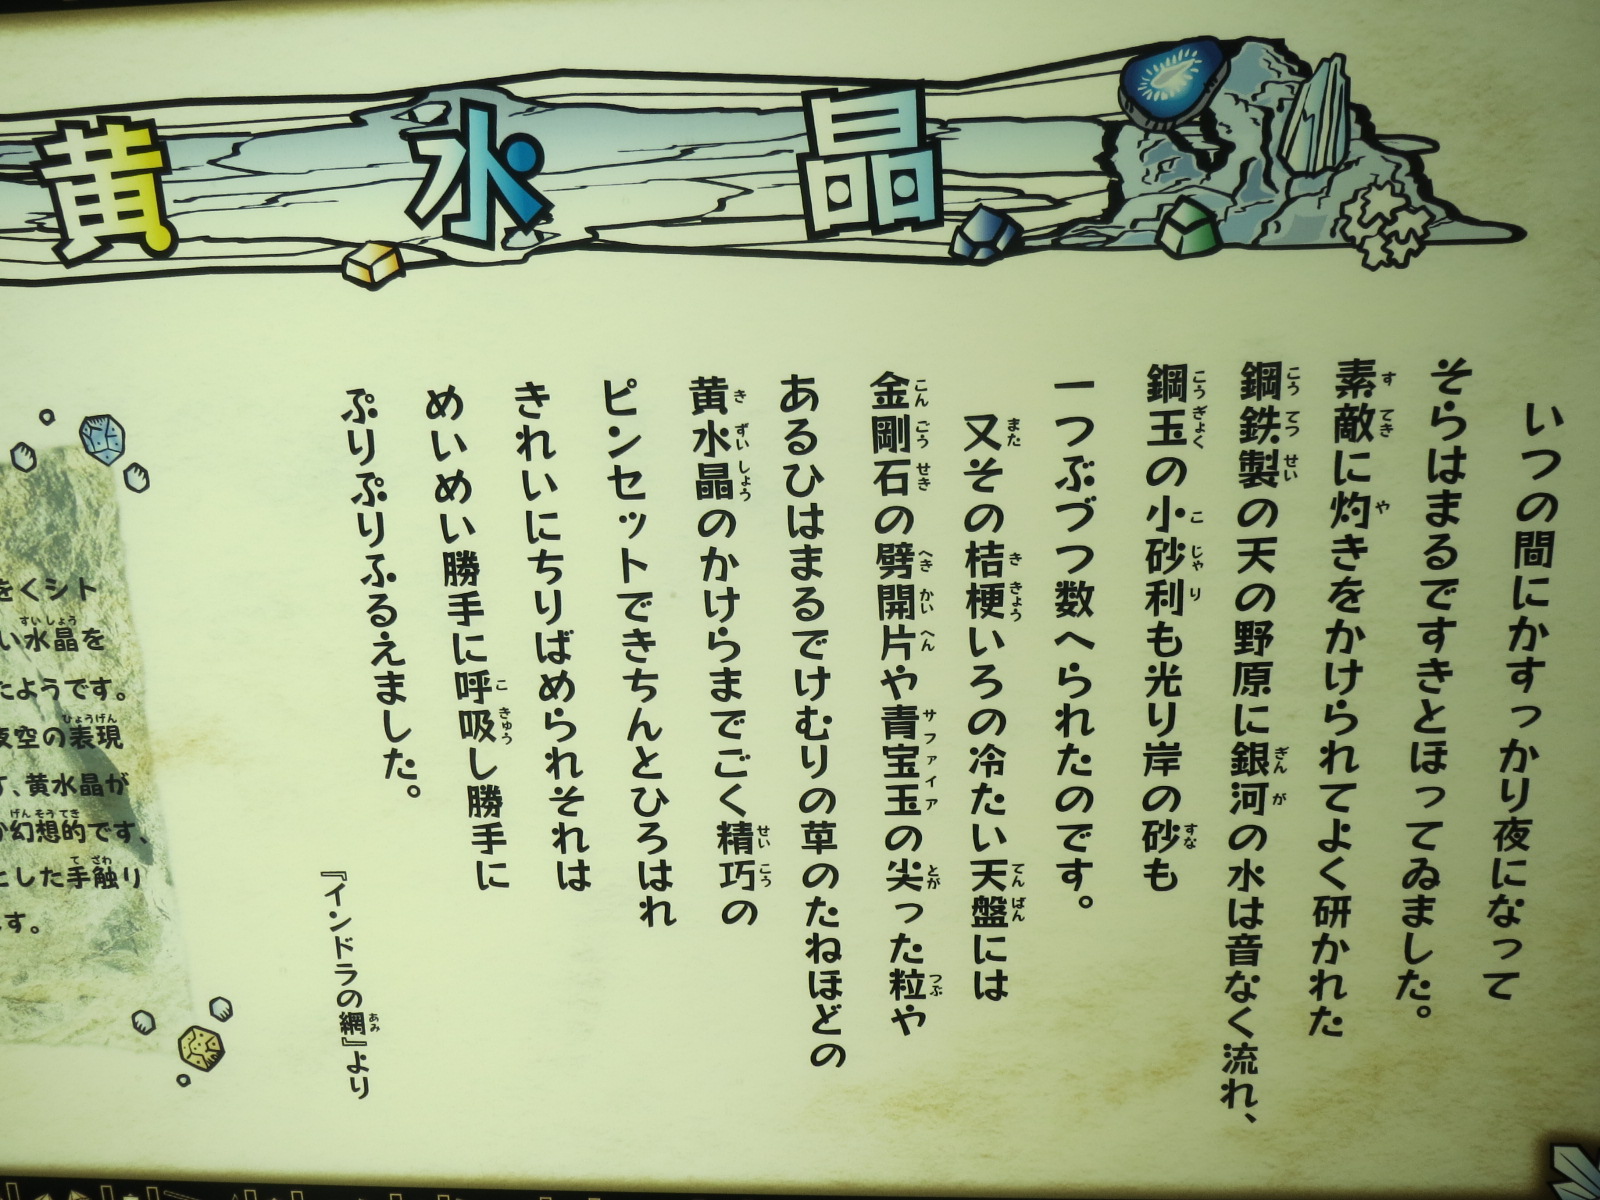 黄水晶
いつの間にかすっかり夜になって
そらはまるですきとほってゐました。
素敵に灼きをかけられてよく研かれた
鋼鉄製の天の野原に銀河の水は音なく流れ、
鋼玉の小砂利も光り岸の砂も
一つぶづつ数へられたのです。
又その桔梗いろの冷たい天盤には
金剛石の劈開片や青宝玉の尖った粒や
あるひはまるでけむりの草のたねほどの
黄水晶のかけらまでごく精巧の
ピンセットできちんとひろはれ
きれいにちりばめられそれは
めいめい勝手に呼吸し勝手に
ぷりぷりふるえました。
『インドラの網』より
をくシト
い水晶を
たようです。
夜空の表現
、黄水晶が
幻想的です、
とした手触り
す。